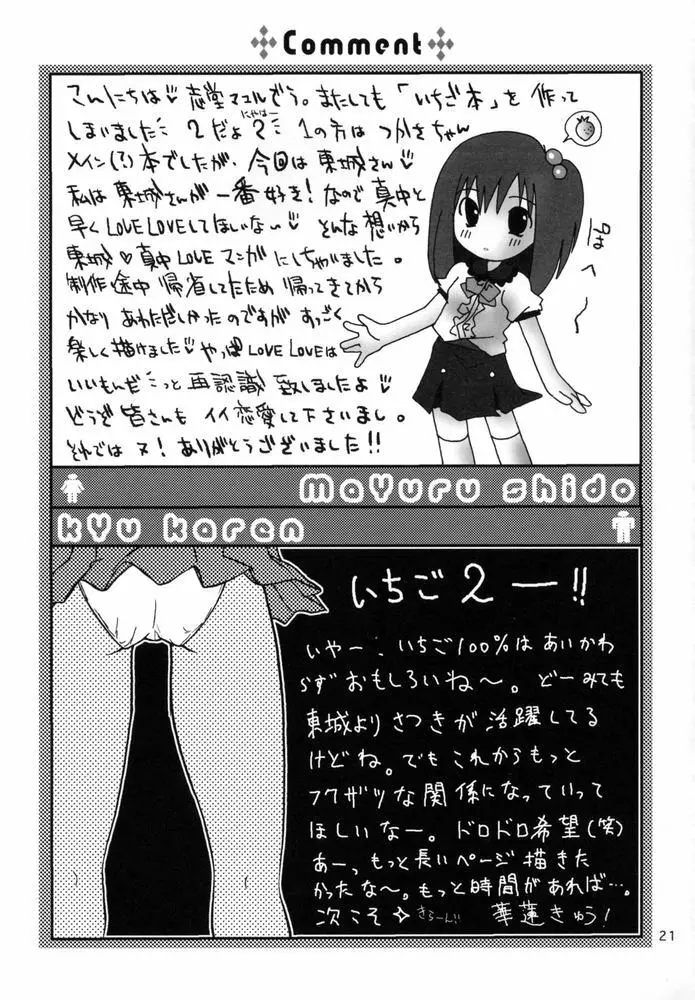 Comment
こんにちは♡ 志堂マユルでぅ。またしても「いちご本」を作って
しまいました 2だよ 2 にゃはー 1の方は つかさちゃん
メイン(?)本でしたが、今回は東城さん♡
私は東城さんが一番好き！なので真中と
早くLOVE LOVEしてほしい な〜♡ そんな想いから
東城♡真中LOVEマンガにしちゃいました。
制作途中帰省してたため帰ってきてから
かなりあわただしかったのですがすっごく
楽しく描けました♡やっぱLOVE LOVEは
いいもんだ っと再認識致しましたよ♡
どうぞ皆さんもイイ恋愛して下さいまし。
それでは ありがとうございました!!
Mayuru shido
kyu karen
いちご2ー!!
いやー、いちご100%はあいかわ
らずおもしろいね〜。どーみても
東城よりさつきが活躍してる
けどね。でもこれからもっと
フクザツな関係になっていって
ほしいなー。ドロドロ希望(笑)
あーっもっと長いページ描きた
かったな〜。もっと時間があれば…。
次こそ✧ きらーん!! 華蓮きゅう！
21